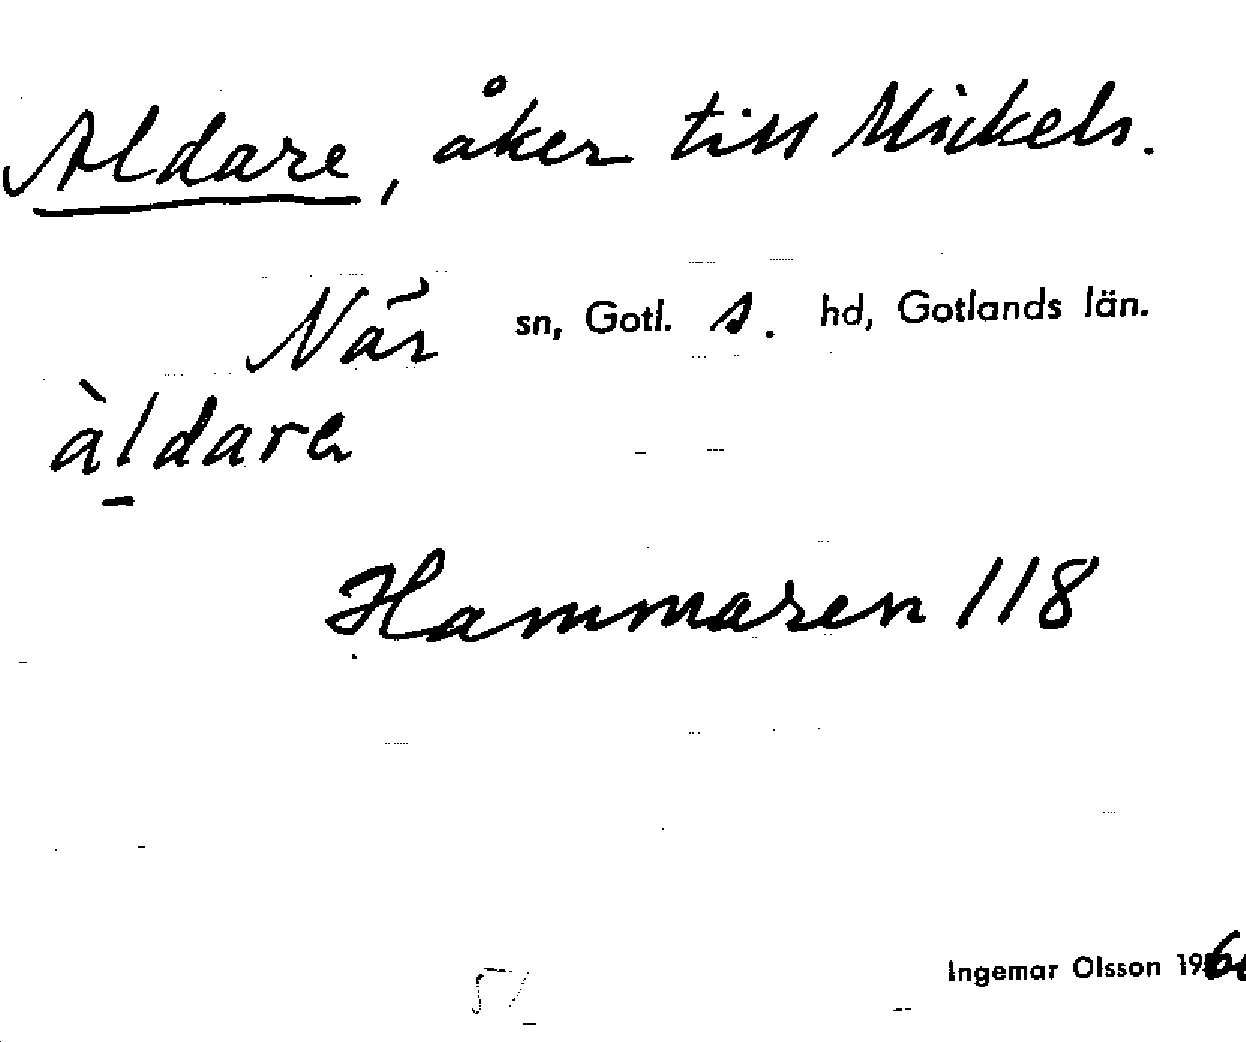 Aldare, åker till Mickels.
När sn, Gotl. s. hd, Gotlands län.
àldare
Hammaren 118
Ingemar Olsson 19